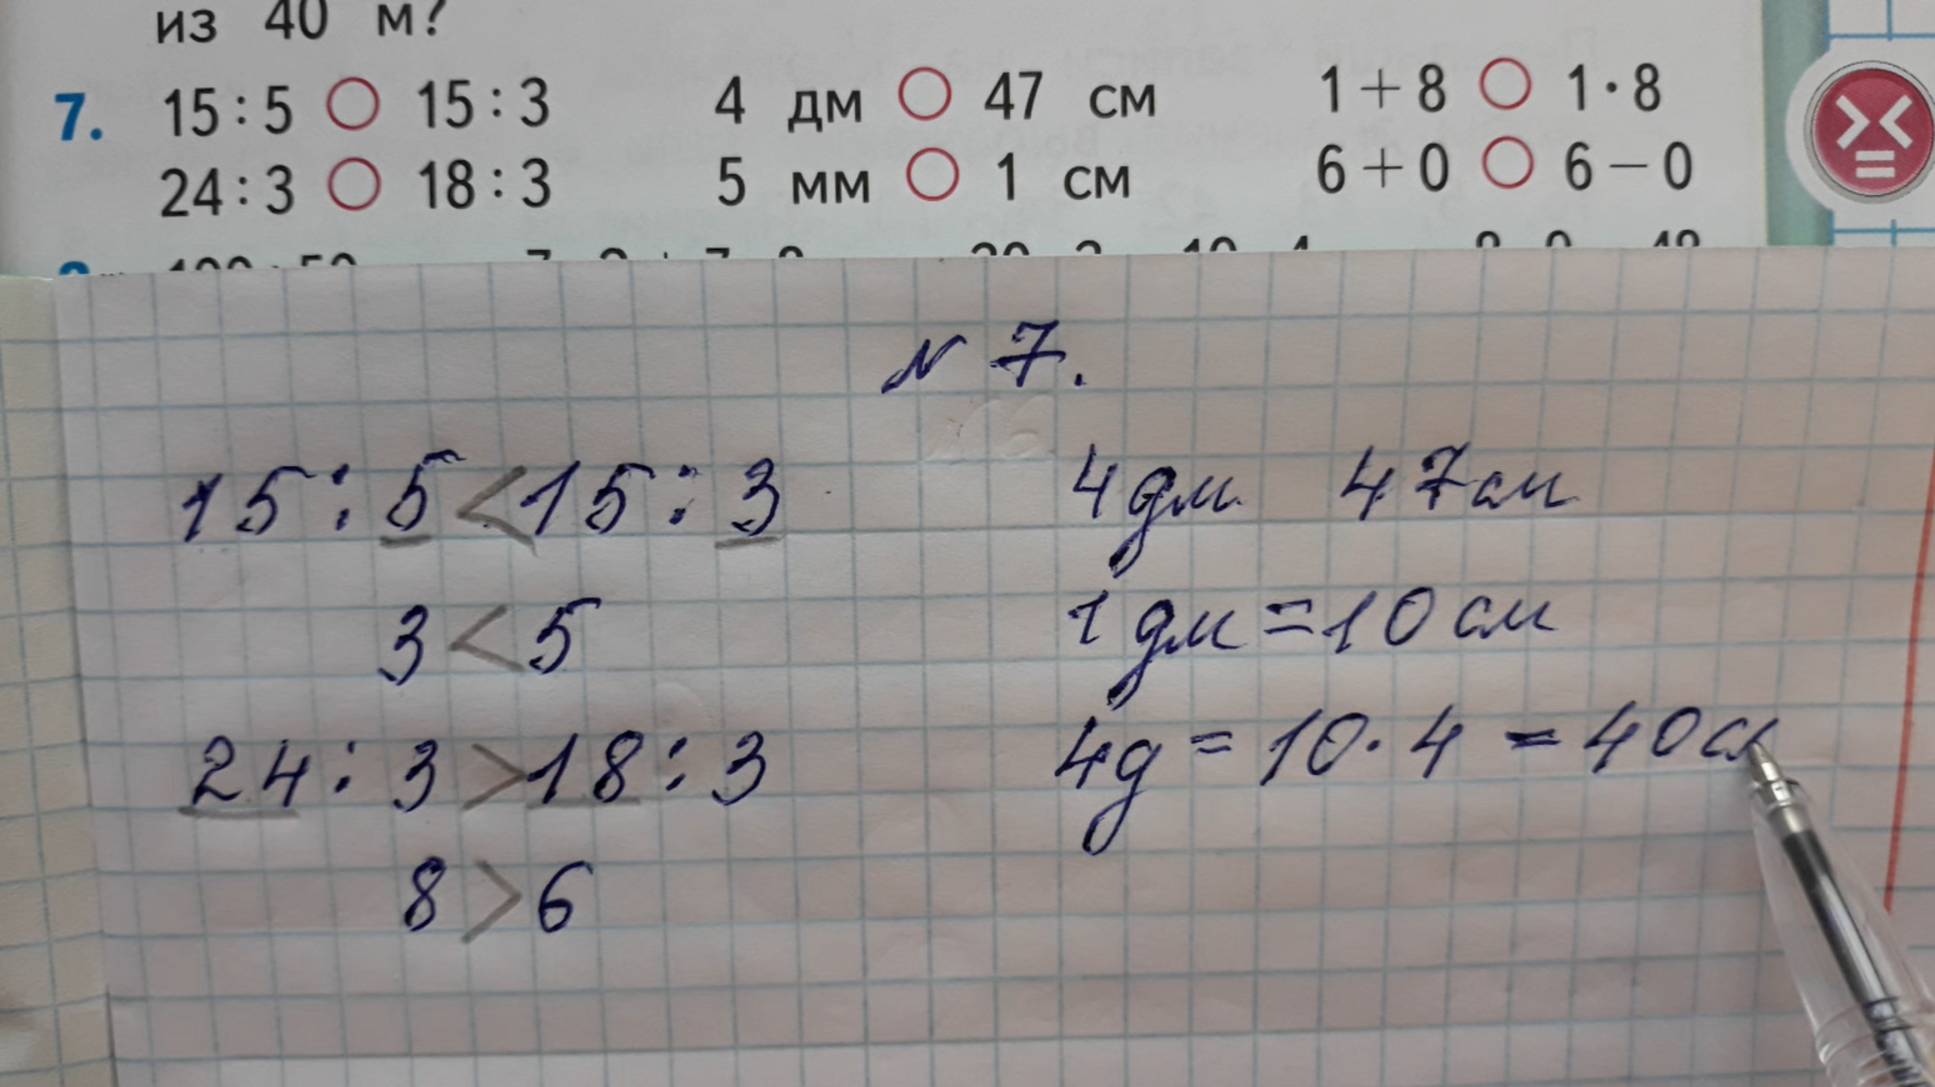 из 40 м?
7. 15 : 5 ○ 15 : 3 4 дм ○ 47 см 1 + 8 ○ 1 · 8
24 : 3 ○ 18 : 3 5 мм ○ 1 см 6 + 0 ○ 6 − 0
N 7.
15 : 5 < 15 : 3
3 < 5
24 : 3 > 18 : 3
8 > 6
4 дм 47 см
1 дм = 10 см
4д = 10 · 4 = 40 см